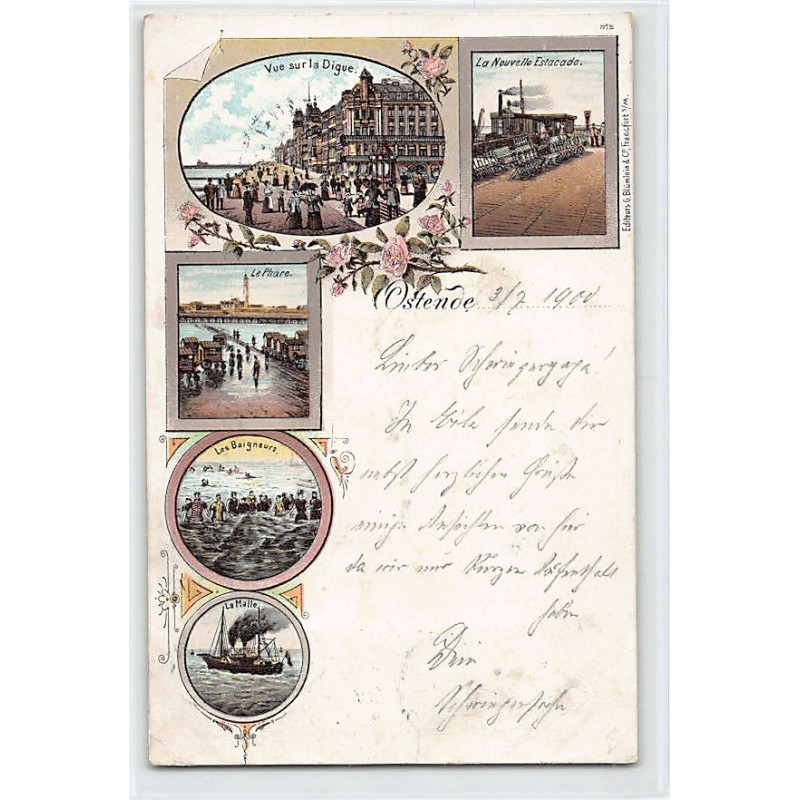 Vue sur la Digue.
La Nouvelle Estacade.
Editeurs G. Blümlein & Co, Francfort s/M.
Le Phare.
Ostende 3/7 1900
Lieber Schwiegerpapa!
In Eile sende dir
nebst herzlichen Grüße
einige Ansichten von hier
da wir nur kurzen Aufenthalt
haben
Dein
Schwiegersohn
Les Baigneurs.
La Malle.